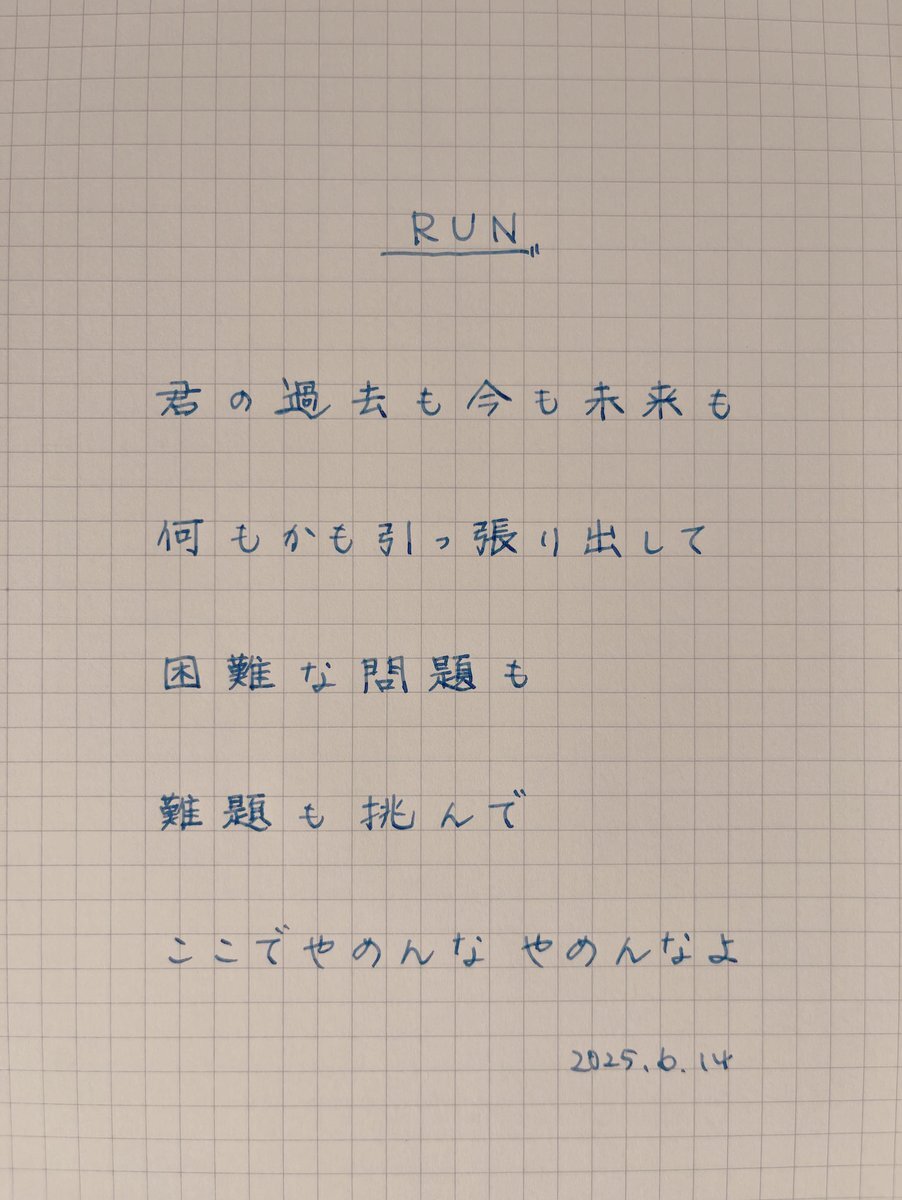 RUN
君の過去も今も未来も
何もかも引っ張り出して
困難な問題も
難題も挑んで
ここでやめんな やめんなよ
2025.6.14